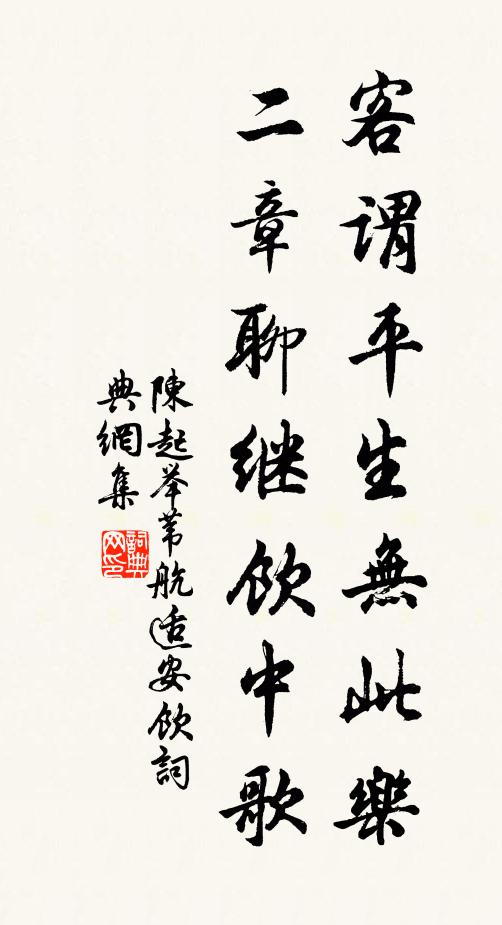 客謂平生無此樂
二章聊继飲中歌
陳起举苇航适安飲詞
典網集
詞典网印